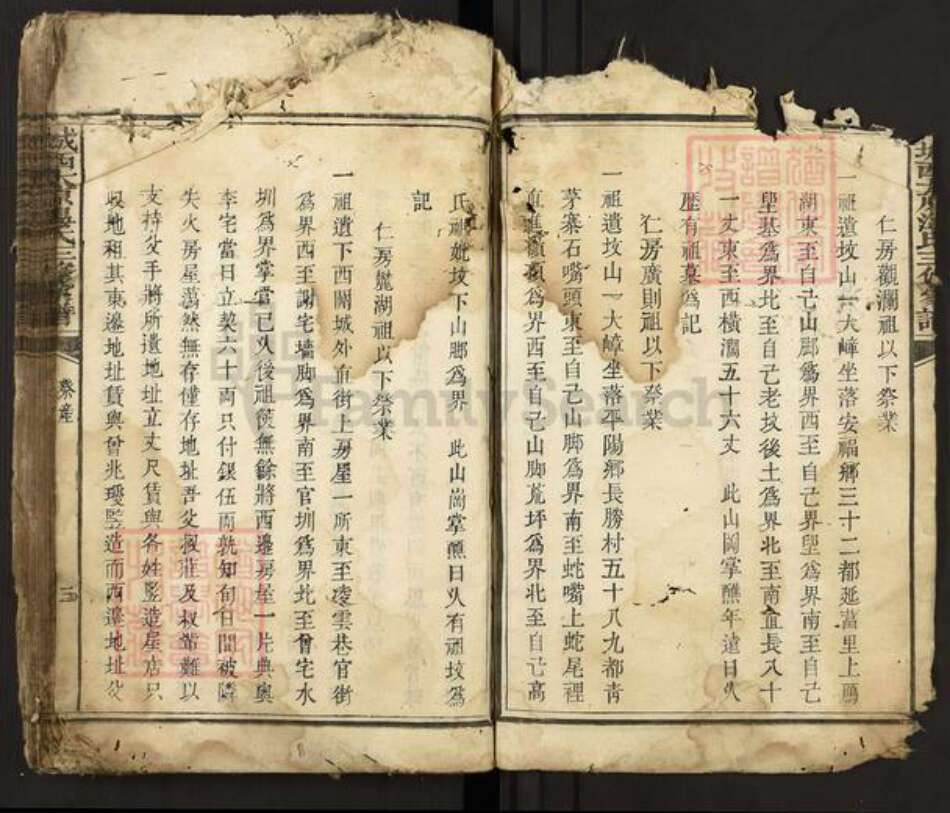 仁房觀瀾祖以下祭業
一祖遺坟山一大嶂坐落安福鄉三十二都延蒿里上鳳
湖東至自己山脚爲界西至自己界壆爲界南至自己
壆基爲界北至自己老坟後土爲界北至南直長入十
一丈東至西橫濶五十六丈 此山岡掌醮年遠日乆
歷有祖墓爲記
仁房廣則祖以下祭業
一祖遺坟山一大嶂坐落平陽鄉長勝村五十八九都靑
茅寨石嘴頭東至自己山脚爲界南至蛇嘴上蛇尾裡
直進 爲界西至自己山脚荒坪爲界北至自己高
氏祖妣坟下山脚爲界 此山崗掌醮日乆有祖坟爲
記
仁房龍湖祖以下祭業
一祖遺下西關城外直街上房屋一所東至凌雲巷官街
爲界西至謝宅墻脚爲界南至官圳爲界北至曾宅水
圳爲界掌管已乆後祖使無餘將西邊房屋一片典與
李宅當日立契六十兩只付銀伍兩孰知旬日間被隣
失火房屋蕩然無存僅存地址吾父 及叔 難以
支持父手將所遺地址立丈尺賃與各姓竪造屋店只
收地租其東邊地址賃與曾兆璦竪造而西邊地址父
祭産
FamilySearch